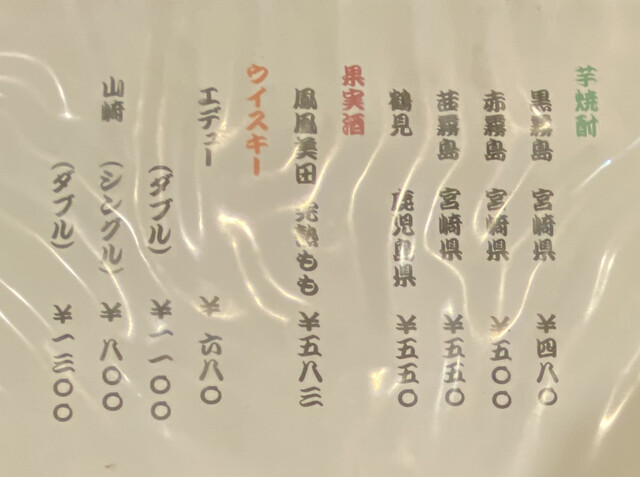 芋焼酎
黒霧島 宮崎県 ¥四八〇
赤霧島 宮崎県 ¥五〇〇
茜霧島 宮崎県 ¥五五〇
鶴見 鹿児島県 ¥五五〇
果実酒
鳳凰美田 完熟もも ¥五八三
ウイスキー
エデュー ¥六八〇
(ダブル) ¥一一〇〇
山崎 (シングル) ¥八〇〇
(ダブル) ¥一三〇〇